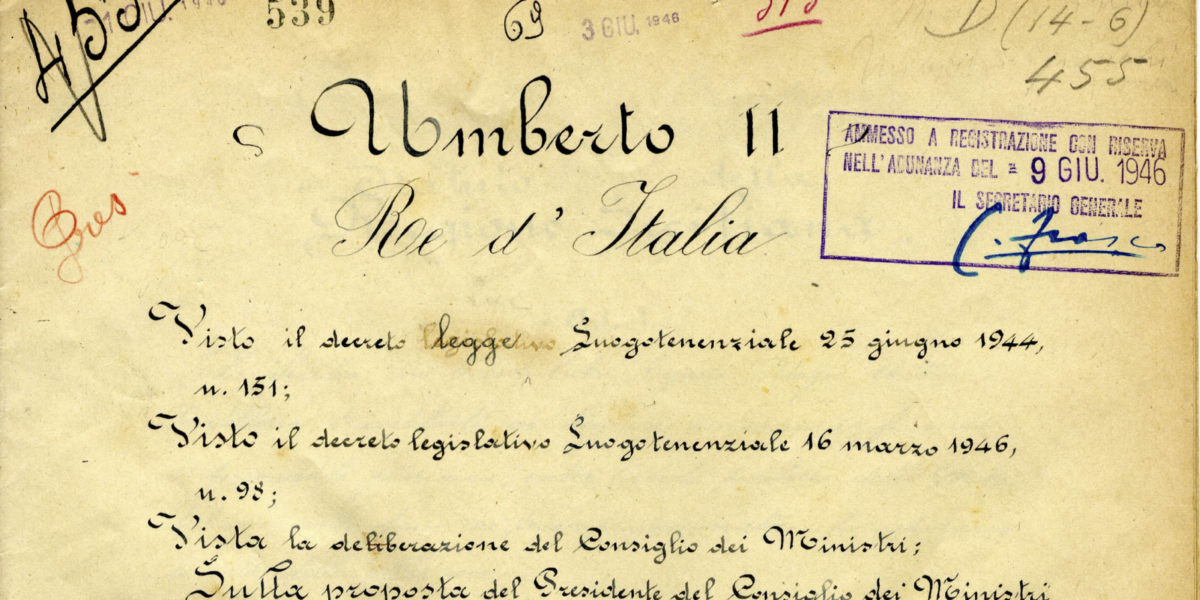 455
539
69
3 GIU. 1946
D (14-6)
455
Umberto II
Re d'Italia
AMMESSO A REGISTRAZIONE CON RISERVA
NELL'ADUNANZA DEL = 9 GIU. 1946
IL SEGRETARIO GENERALE
Visto il decreto legge Luogotenenziale 25 giugno 1944,
n. 151;
Visto il decreto legislativo Luogotenenziale 16 marzo 1946,
n. 98;
Vista la deliberazione del Consiglio dei Ministri;
Sulla proposta del Presidente del Consiglio dei Ministri